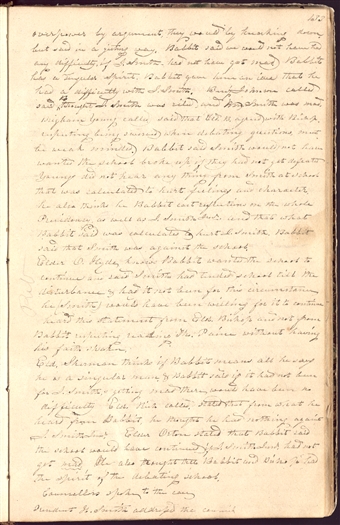 overpower by argument, they would by knocking down,
but said in a joking way, Babbit said we would not have had
any difficulty, if L. Smith had not have got mad Babbit
has a singular spirit. Babbit gave him an idea that he
had a difficulty with L. Smith, Benj. called
said thought L. Smith was vile and Wm Smith was mad
Brigham Young called said that Eld. H. agreed with Bishop
respecting being snared when debating questions must
be weak minded, Babbit said Smith would not have
wanted the school broke up if they had not got defeated
Young did not hear any thing from Smith at school
that was calculated to hurt feelings and character
he also thinks Mr Babbit cast reflections on the whole
Presidency as well as L. Smith and that what
Babbit said was calculated to hurt L. Smith, Babbit
said that Smith was against the school,
Elder O. Hyde, knows Babbit wanted the school to
continue and said Smith had trusted school till the
disturbance & has it not been for this circumstance
he (Smith) would have been willing for it to continue
heard this statement from Eld. Bishop and not from
Babbit respecting reading Tho. Paine without having
his faith shaken,
Eld. Sherman thinks if Babbit means all he says
he is a singular man, & Babbit said if it had not been
for J. Smith getting mad there would have been no
difficulty Eld. called, stated that from what he
heard from Babbit, he thought he had nothing against
J. Smith Jr. Elder Orton stated that Babbit said
the school would have continued if J. Smith Jr. had not
got mad He also thought that Babbit and had
the spirit of the debating school,
Councellors spoke to the case
H. Smith addressed the council